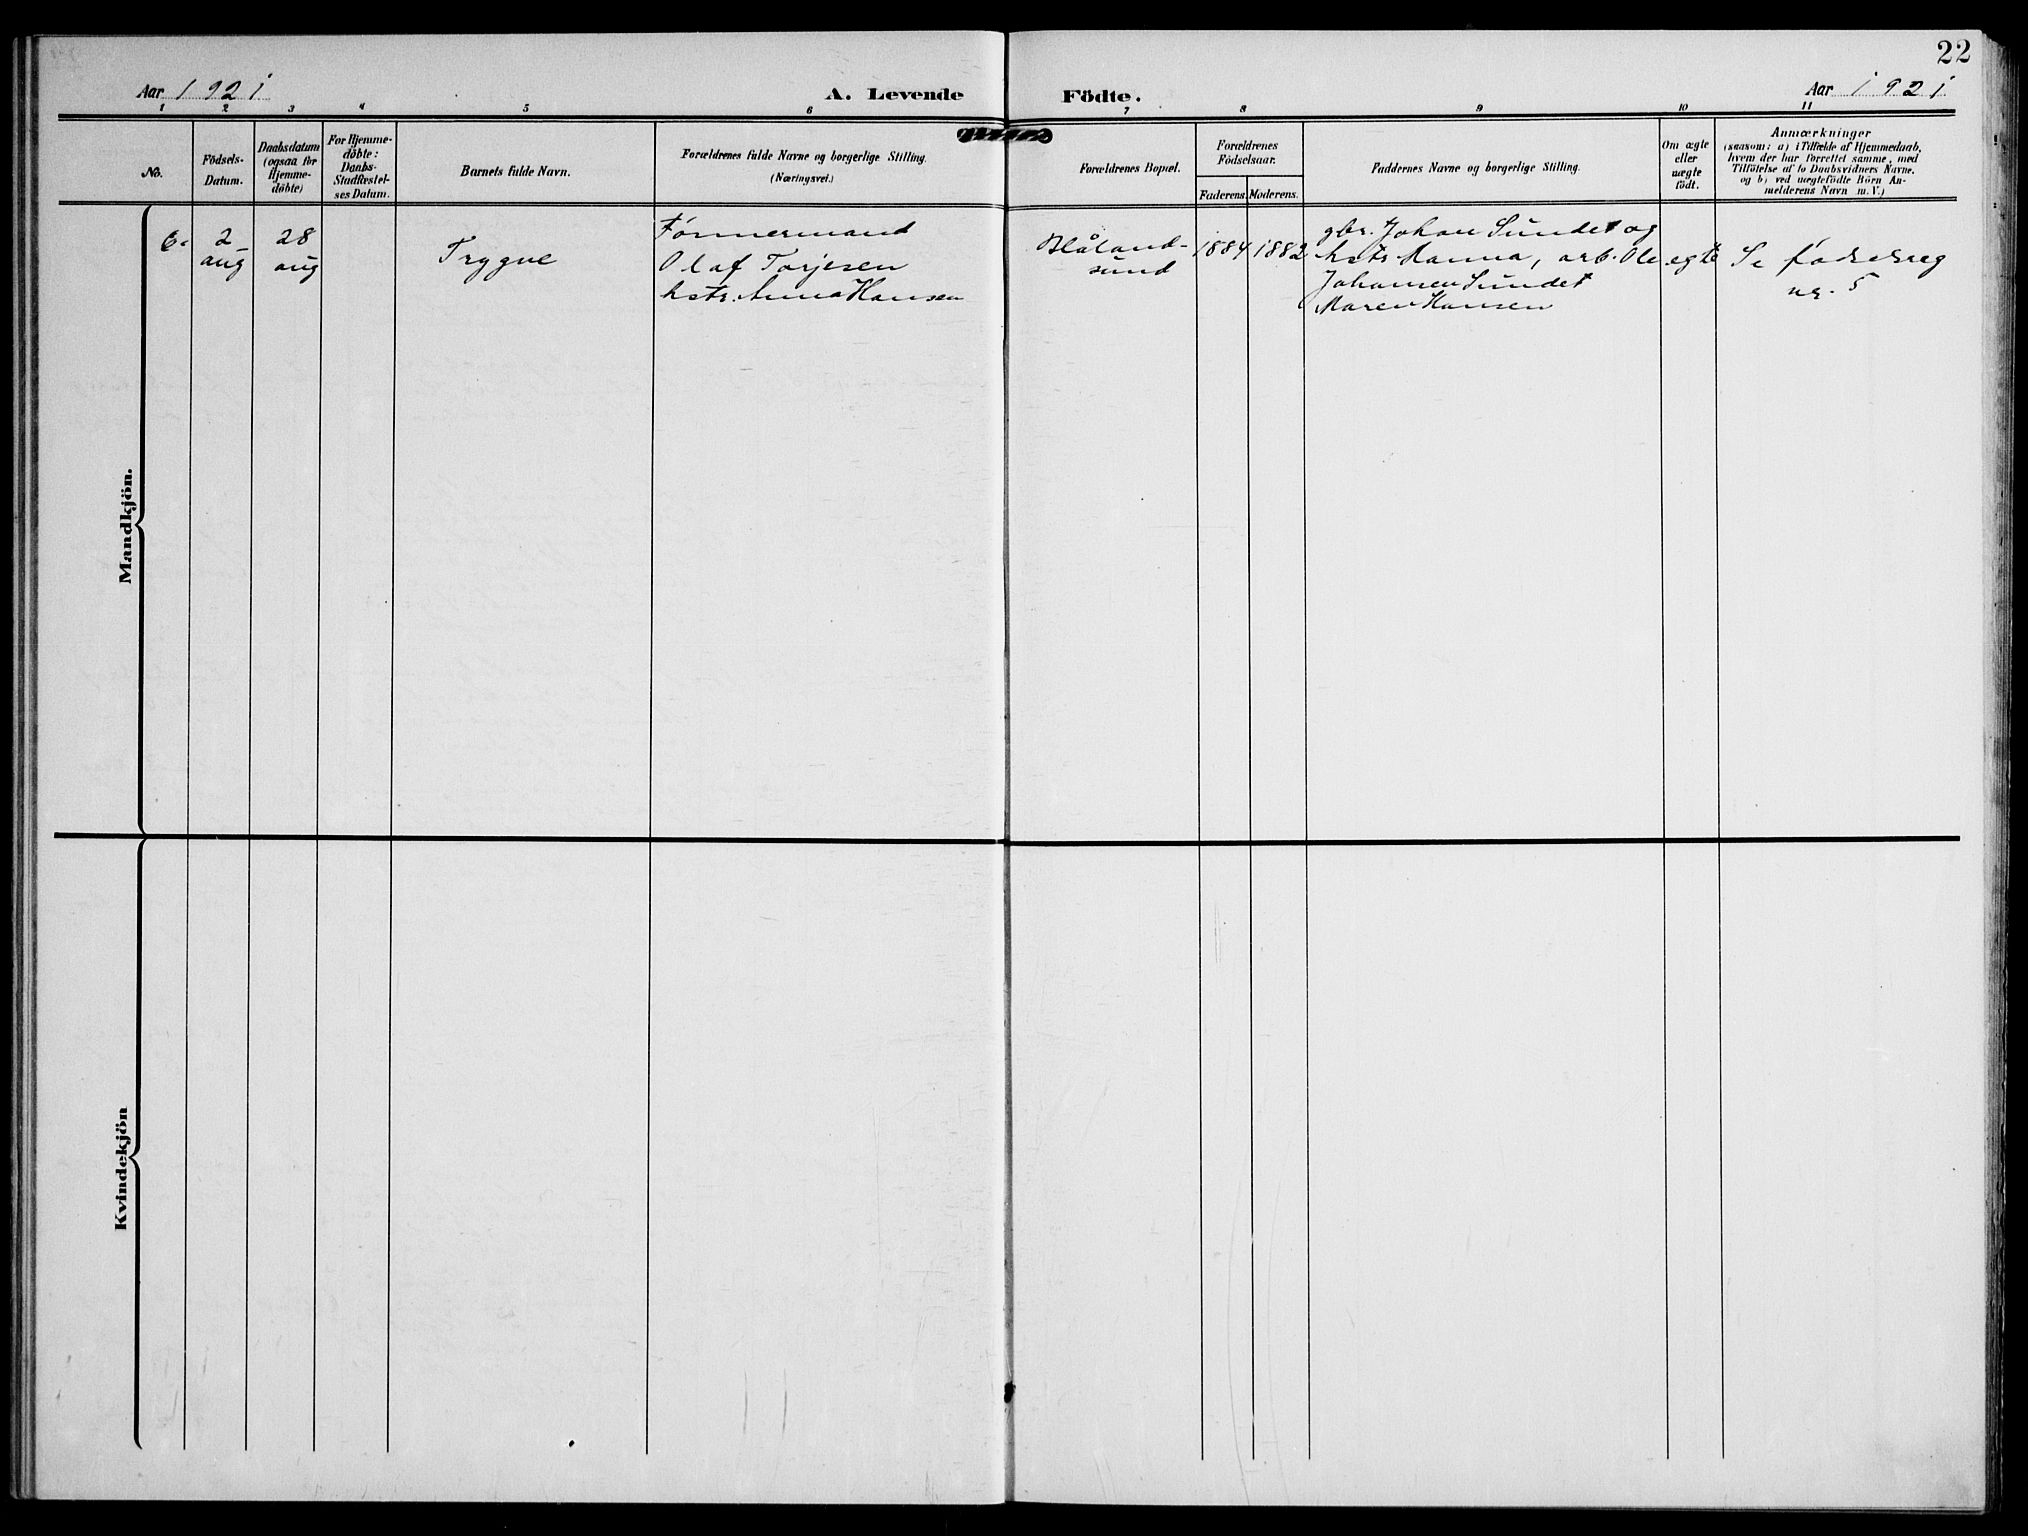 22
Aar 1921
A. Levende
Födte.
Aar 1921
1 2 3 4 5 6 7 8 9 10 11
No.
Födsels-
Datum.
Daabsdatum
(ogsaa for
Hjemme-
döbte)
For Hjemme-
döbte:
Daabs-
Stadfæstel-
ses Datum.
Barnets fulde Navn.
Forældrenes fulde Navne og borgerlige Stilling.
(Næringsvei.)
Forældrenes Bopæl.
Forældrenes
Födselsaar.
Faderens. Moderens.
Faddernes Navne og borgerlige Stilling.
Om ægte
eller
uægte
födt.
Anmærkninger
(saasom: a) i Tilfælde af Hjemmedaab,
hvem der har forrettet samme, med
Tilföielse af to Daabsvidners Navne.
og b) ved uægtefödte Börn An-
melderens Navn m. V.)
Mandkjön.
6.
2
aug
28
aug
Trygve
Tømmermand
Olaf Torjesen
hstr. Anna Hansen
Blåland-
sund
1884
1882
gbr. Johan Sundet og
hstr Hanna, arb. Ole
Johansen Sundet
Maren Hansen
egte
Se fødselsreg
nr. 5
Kvindekjön